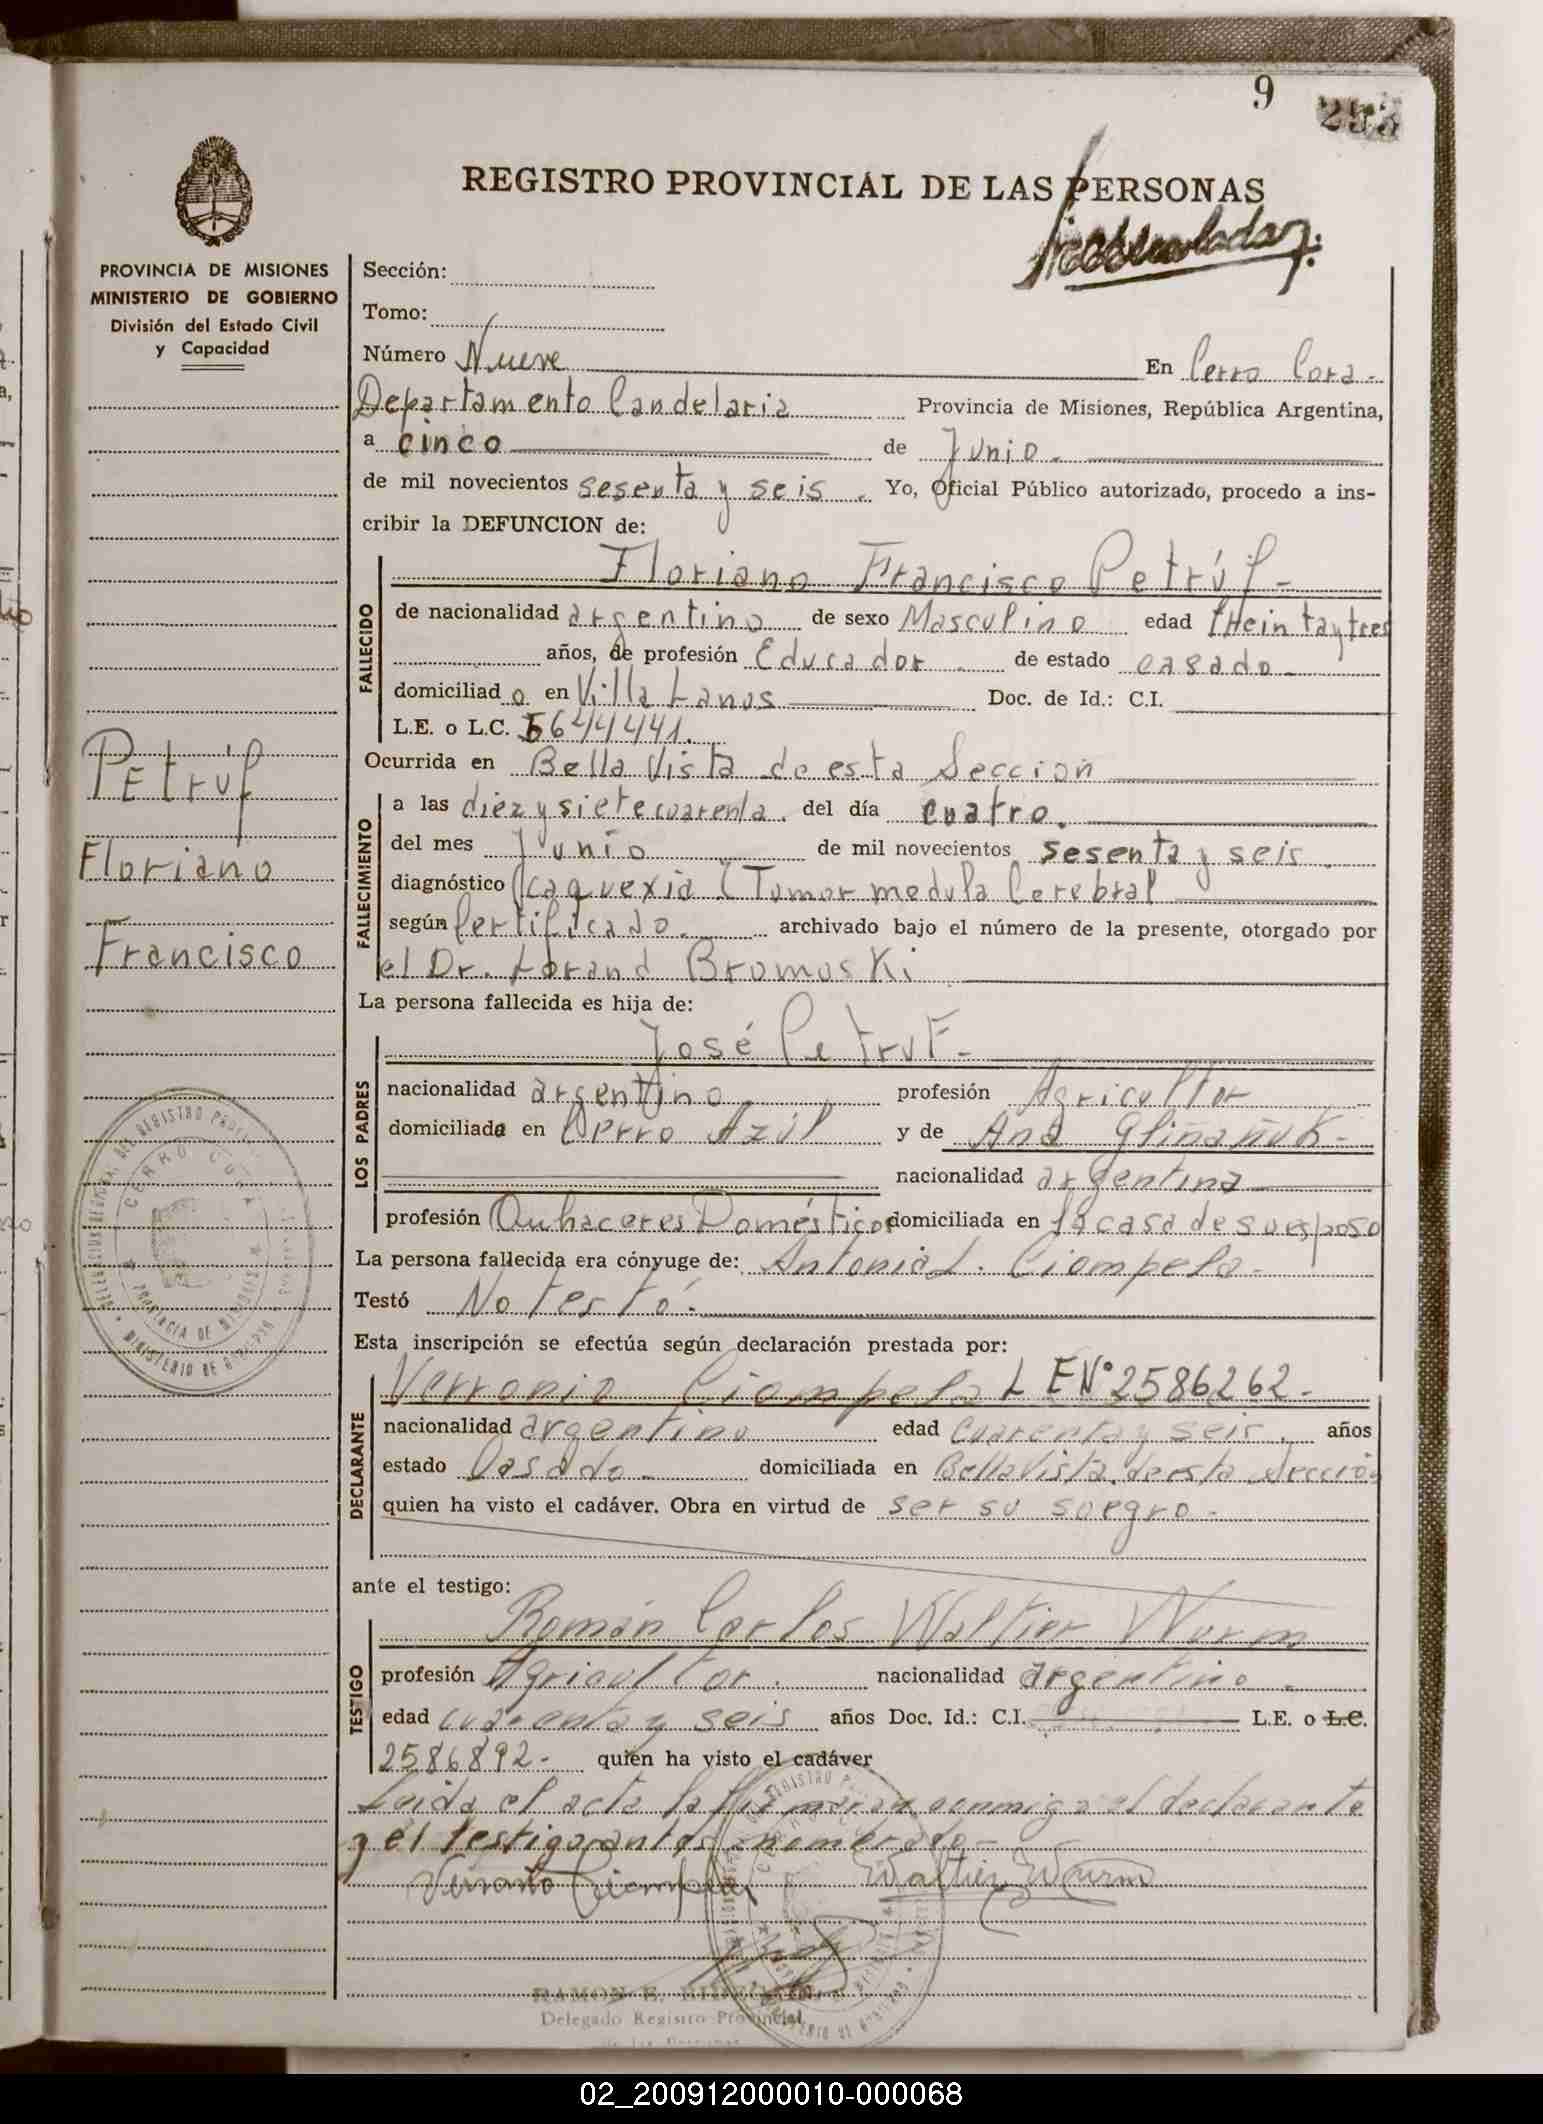 9 253
REGISTRO PROVINCIAL DE LAS PERSONAS
PROVINCIA DE MISIONES
MINISTERIO DE GOBIERNO
División del Estado Civil
y Capacidad
Petrúf
Floriano
Francisco
Sección:
Tomo:
Número Nueve En Cerro Cora.-
Departamento Candelaria Provincia de Misiones, República Argentina,
a cinco de Junio.
de mil novecientos sesenta y seis. Yo, Oficial Público autorizado, procedo a ins-
cribir la DEFUNCION de:
FALLECIDO
Floriano Francisco Petrúf-
de nacionalidad argentino de sexo Masculino edad
años, de profesión Educador de estado casado-
domiciliado en Villa Lanus Doc. de Id.: C.I.
L.E. o L.C. 5644441.
Ocurrida en Bella Vista de esta Sección
FALLECIMIENTO
a las diez y siete cuarenta. del día cuatro.
del mes Junio de mil novecientos sesenta y seis.
diagnóstico caquexia (Tumor medula Cerebral
según Certificado. archivado bajo el número de la presente, otorgado por
el Dr. Lorand Bromoski
La persona fallecida es hija de:
LOS PADRES
José Petruf-
nacionalidad argentino profesión Agricultor
domiciliada en Cerro Azúl y de Ana
nacionalidad argentina
profesión Quhaceres Domésticos domiciliada en la casa de su esposo
La persona fallecida era cónyuge de: Antonia L. Ciompela-
Testó No testó.
Esta inscripción se efectúa según declaración prestada por:
DECLARANTE
Verronio Ciompela L E Nº 2586262.-
nacionalidad argentino edad cuarenta y seis. años
estado Casado- domiciliada en Bella Vista de esta Sección
quien ha visto el cadáver. Obra en virtud de ser su suegro-
ante el testigo:
TESTIGO
Román Carlos Waltier Wurm
profesión Agricultor. nacionalidad argentino.
edad cuarenta y seis años Doc. Id.: C.I. L.E. o L.C.
2586892- quien ha visto el cadáver
Leida el acta la firmaran conmigo el declarante
y el testigo antes nombrado-
Waltier Wurm
CERRO CORA
PROVINCIA DE MISIONES
Delegado Registro Provincial
de las Personas
02_200912000010-000068